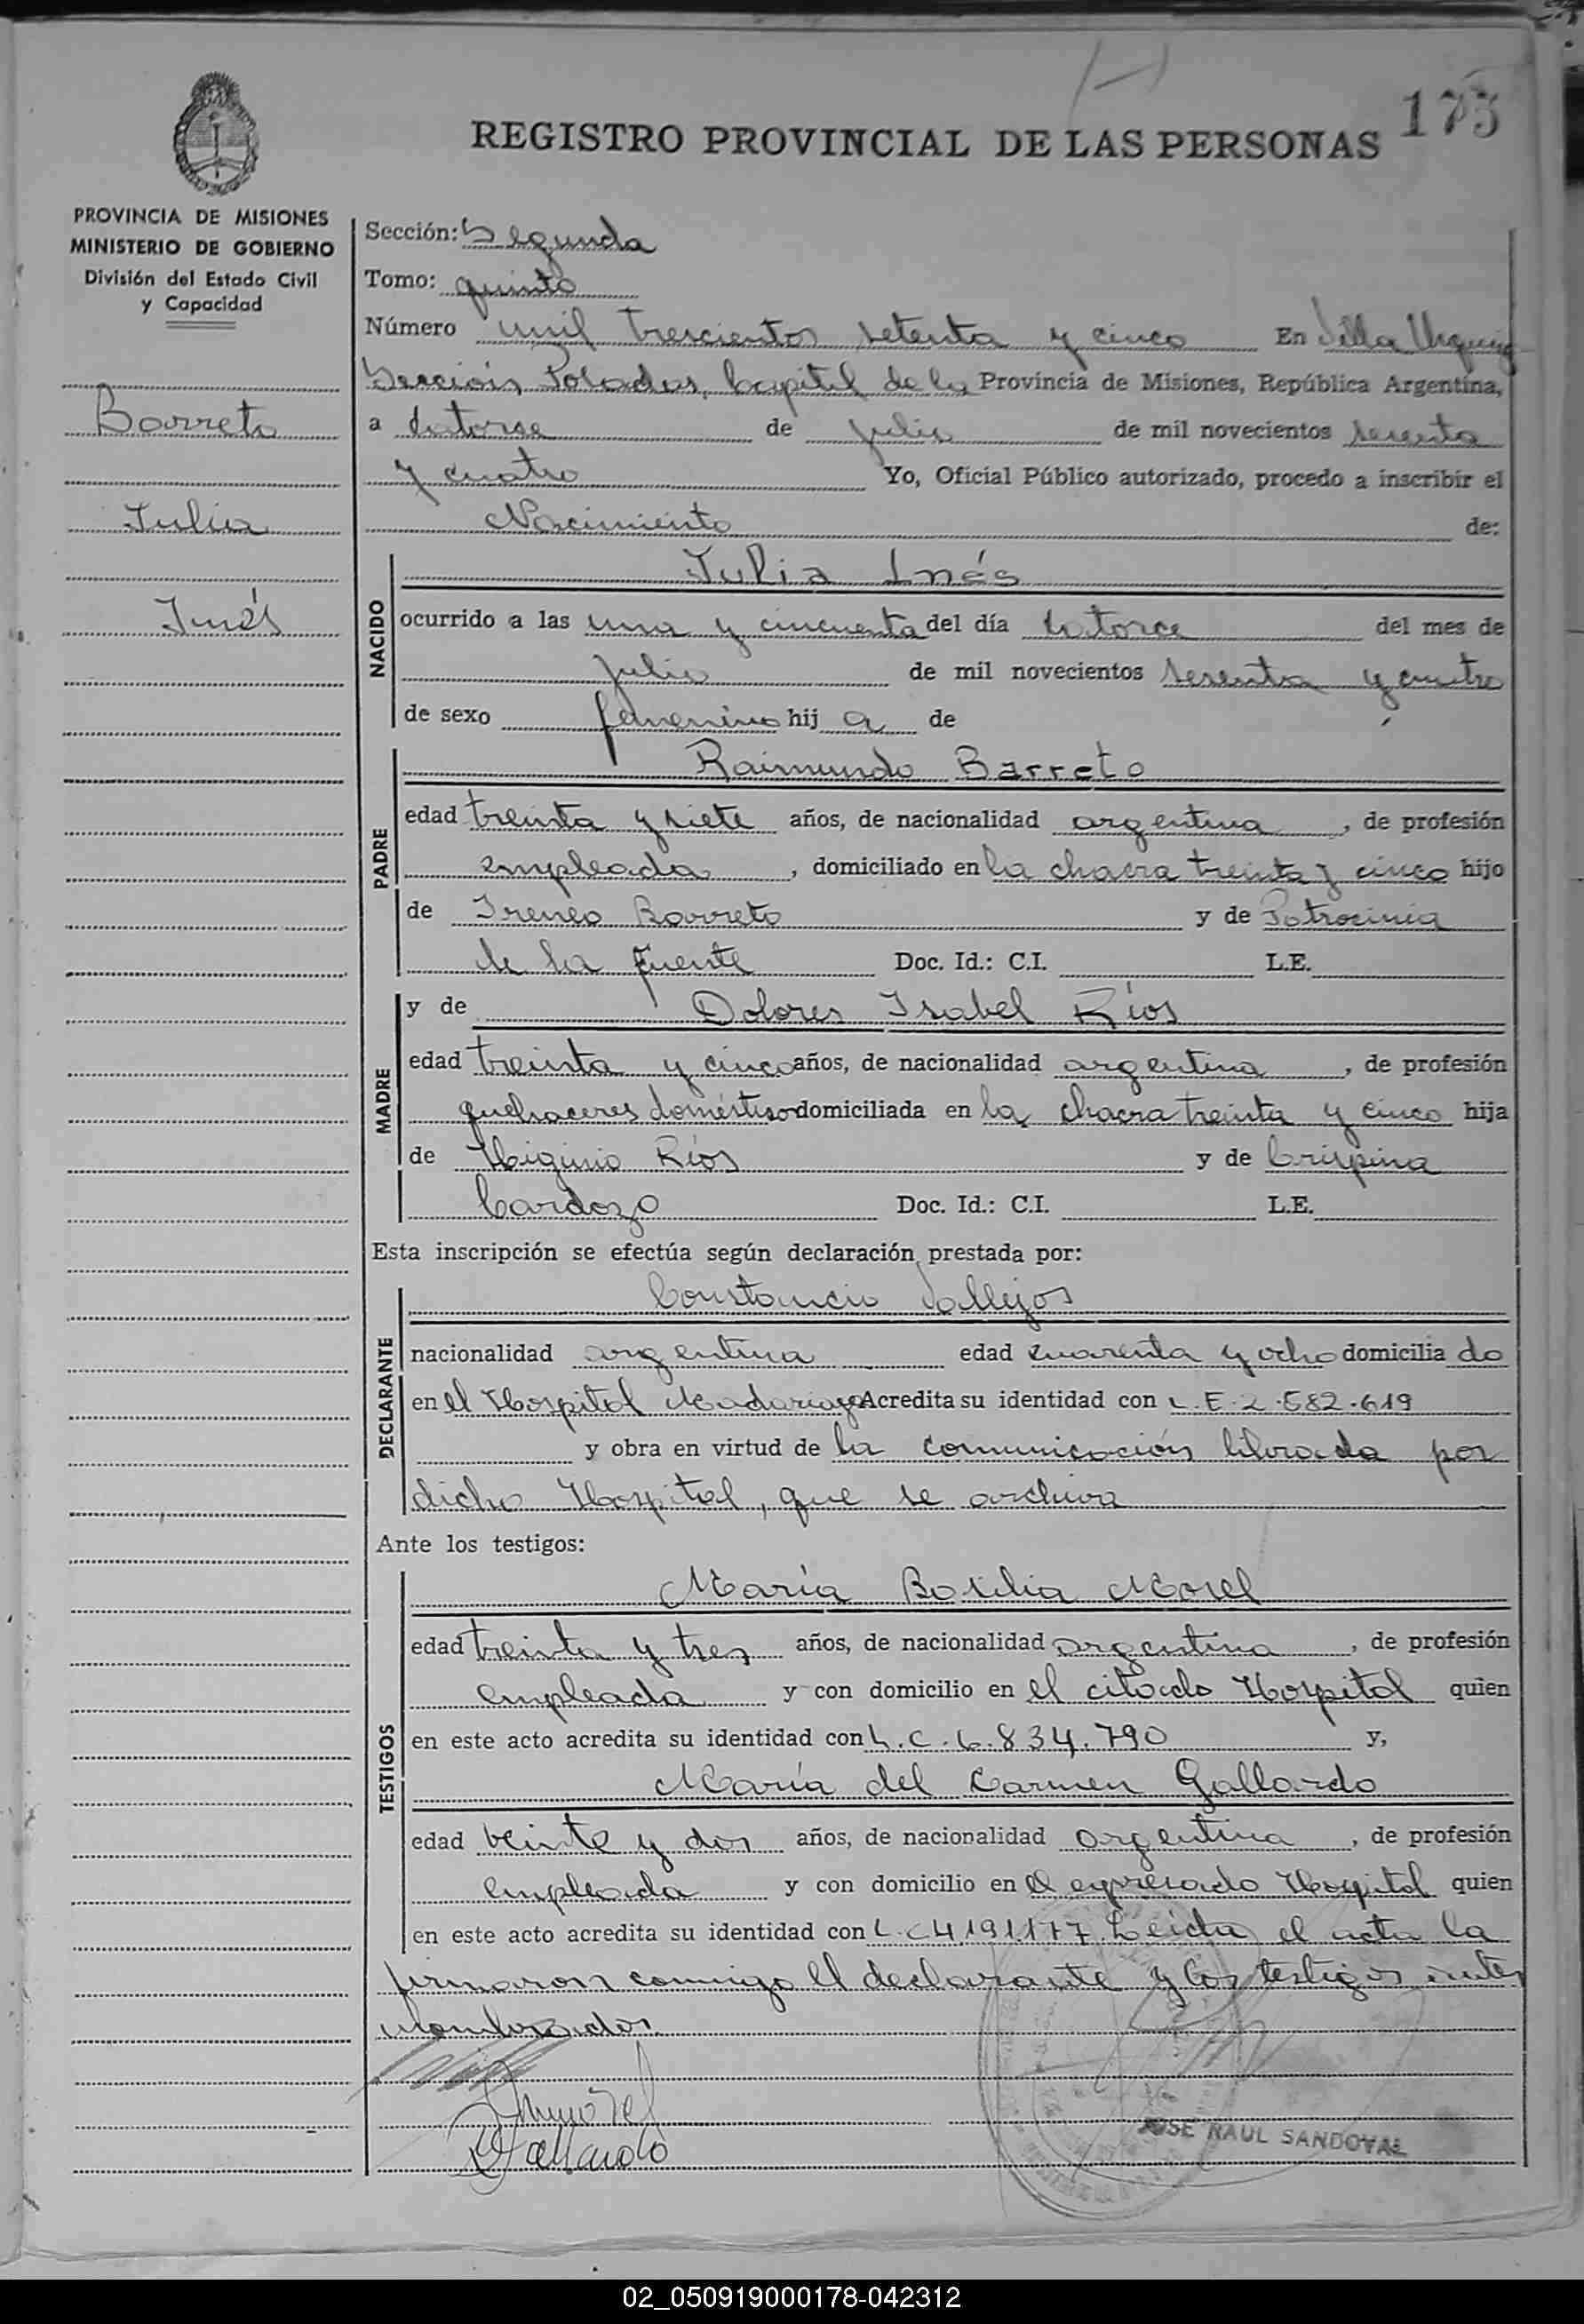 175
REGISTRO PROVINCIAL DE LAS PERSONAS
PROVINCIA DE MISIONES
MINISTERIO DE GOBIERNO
División del Estado Civil
y Capacidad
Barreto
Julia
Inés
Sección: Segunda
Tomo: quinto
Número mil trescientos setenta y cinco En Villa Urquiza
Sección Posadas, Capital de la Provincia de Misiones, República Argentina,
a catorse de julio de mil novecientos sesenta
y cuatro Yo, Oficial Público autorizado, procedo a inscribir el
Nacimiento de:
NACIDO
Julia Inés
ocurrido a las una y cincuenta del día catorce del mes de
julio de mil novecientos sesenta y cuatro
de sexo femenino hij a de
PADRE
Raimundo Barreto
edad treinta y siete años, de nacionalidad argentina, de profesión
empleado, domiciliado en la chacra treinta y cinco hijo
de Ireneo Barreto y de Patrocinia
de la Fuente Doc. Id.: C.I. L.E.
MADRE
y de Dolores Isabel Ríos
edad treinta y cinco años, de nacionalidad argentina, de profesión
quehaceres domésticos domiciliada en la chacra treinta y cinco hija
de Higinio Ríos y de Crispina
Cardozo Doc. Id.: C.I. L.E.
Esta inscripción se efectúa según declaración prestada por:
DECLARANTE
Constancio Vallejos
nacionalidad argentina edad cuarenta y ocho domicilia do
en el Hospital Madariaga Acredita su identidad con L.E.2.582.619
y obra en virtud de la comunicación librada por
dicho Hospital, que se archiva
Ante los testigos:
TESTIGOS
María Basilia Morel
edad treinta y tres años, de nacionalidad argentina, de profesión
empleada y con domicilio en el citado Hospital quien
en este acto acredita su identidad con L.C.6.834.790 y,
María del Carmen Gallardo
edad veinte y dos años, de nacionalidad argentina, de profesión
empleada y con domicilio en el expresado Hospital quien
en este acto acredita su identidad con L.C 4.191.177. Leida el acta la
firmaron conmigo el declarante y los testigos antes
nombrados.
Gallardo
JOSE RAUL SANDOVAL
02_050919000178-042312